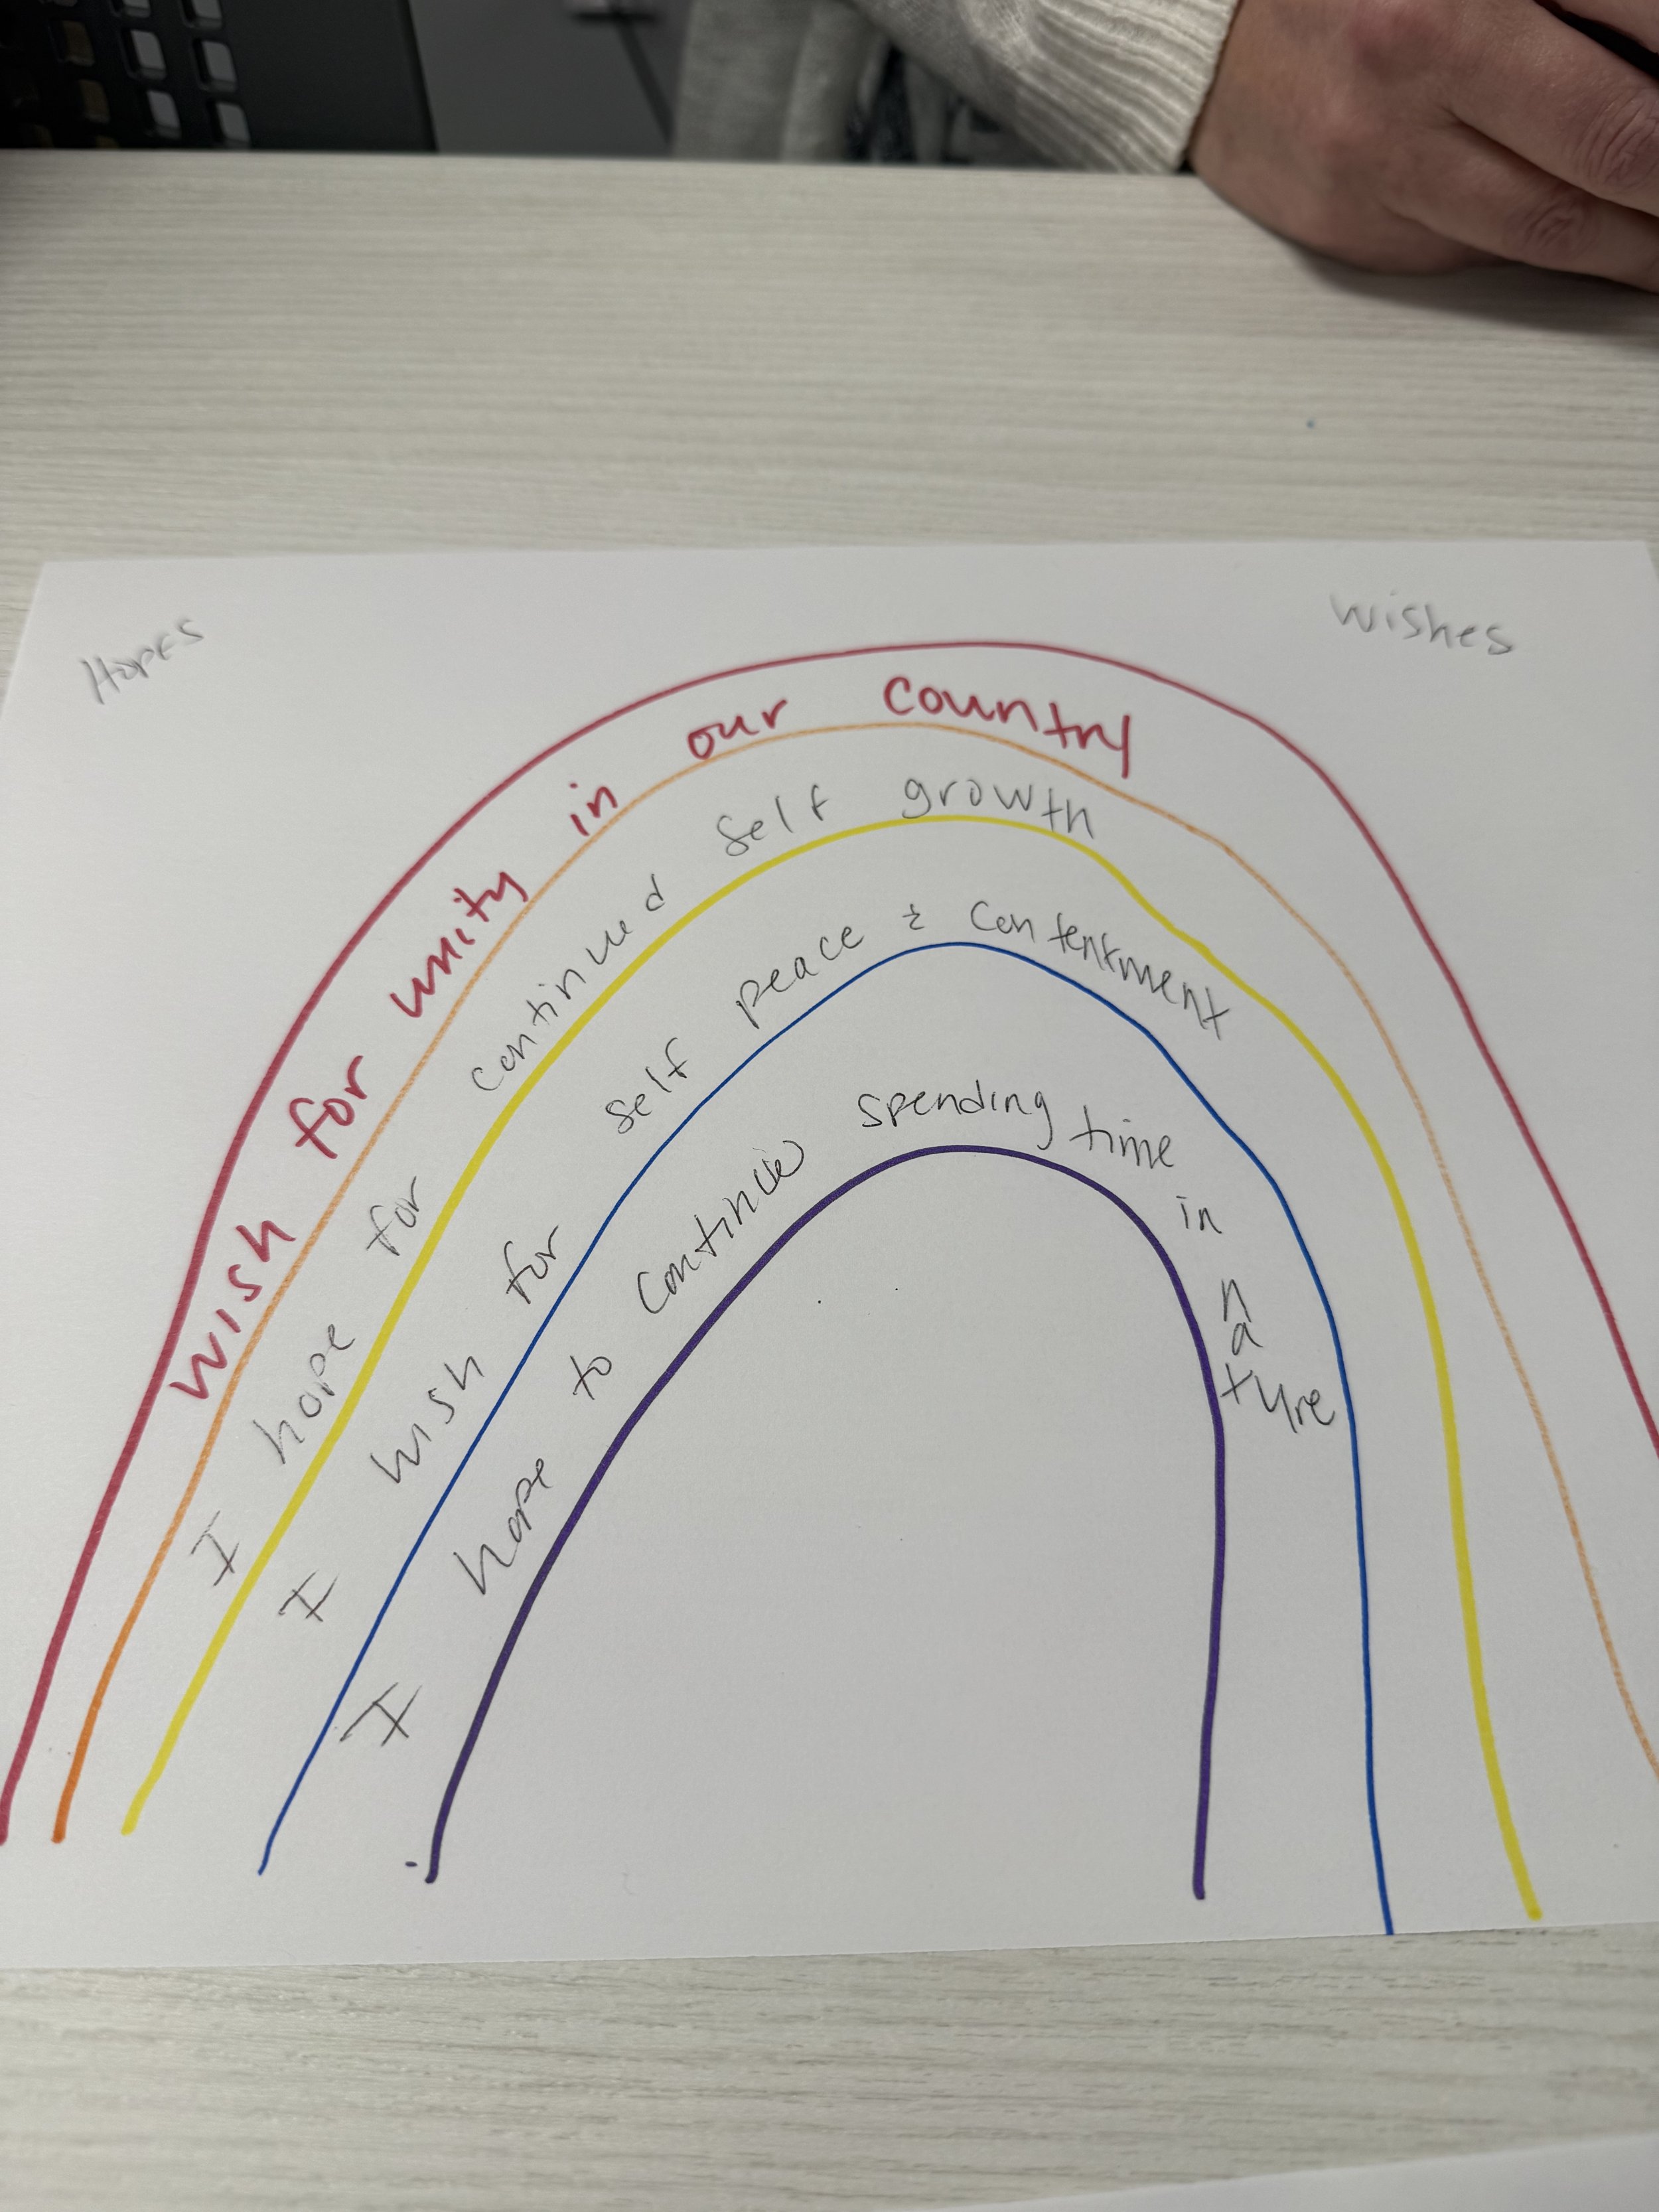 Hopes
Wishes
wish for unity in our country
I hope for continued self growth
I wish for self peace & contentment
I hope to continue spending time in nature